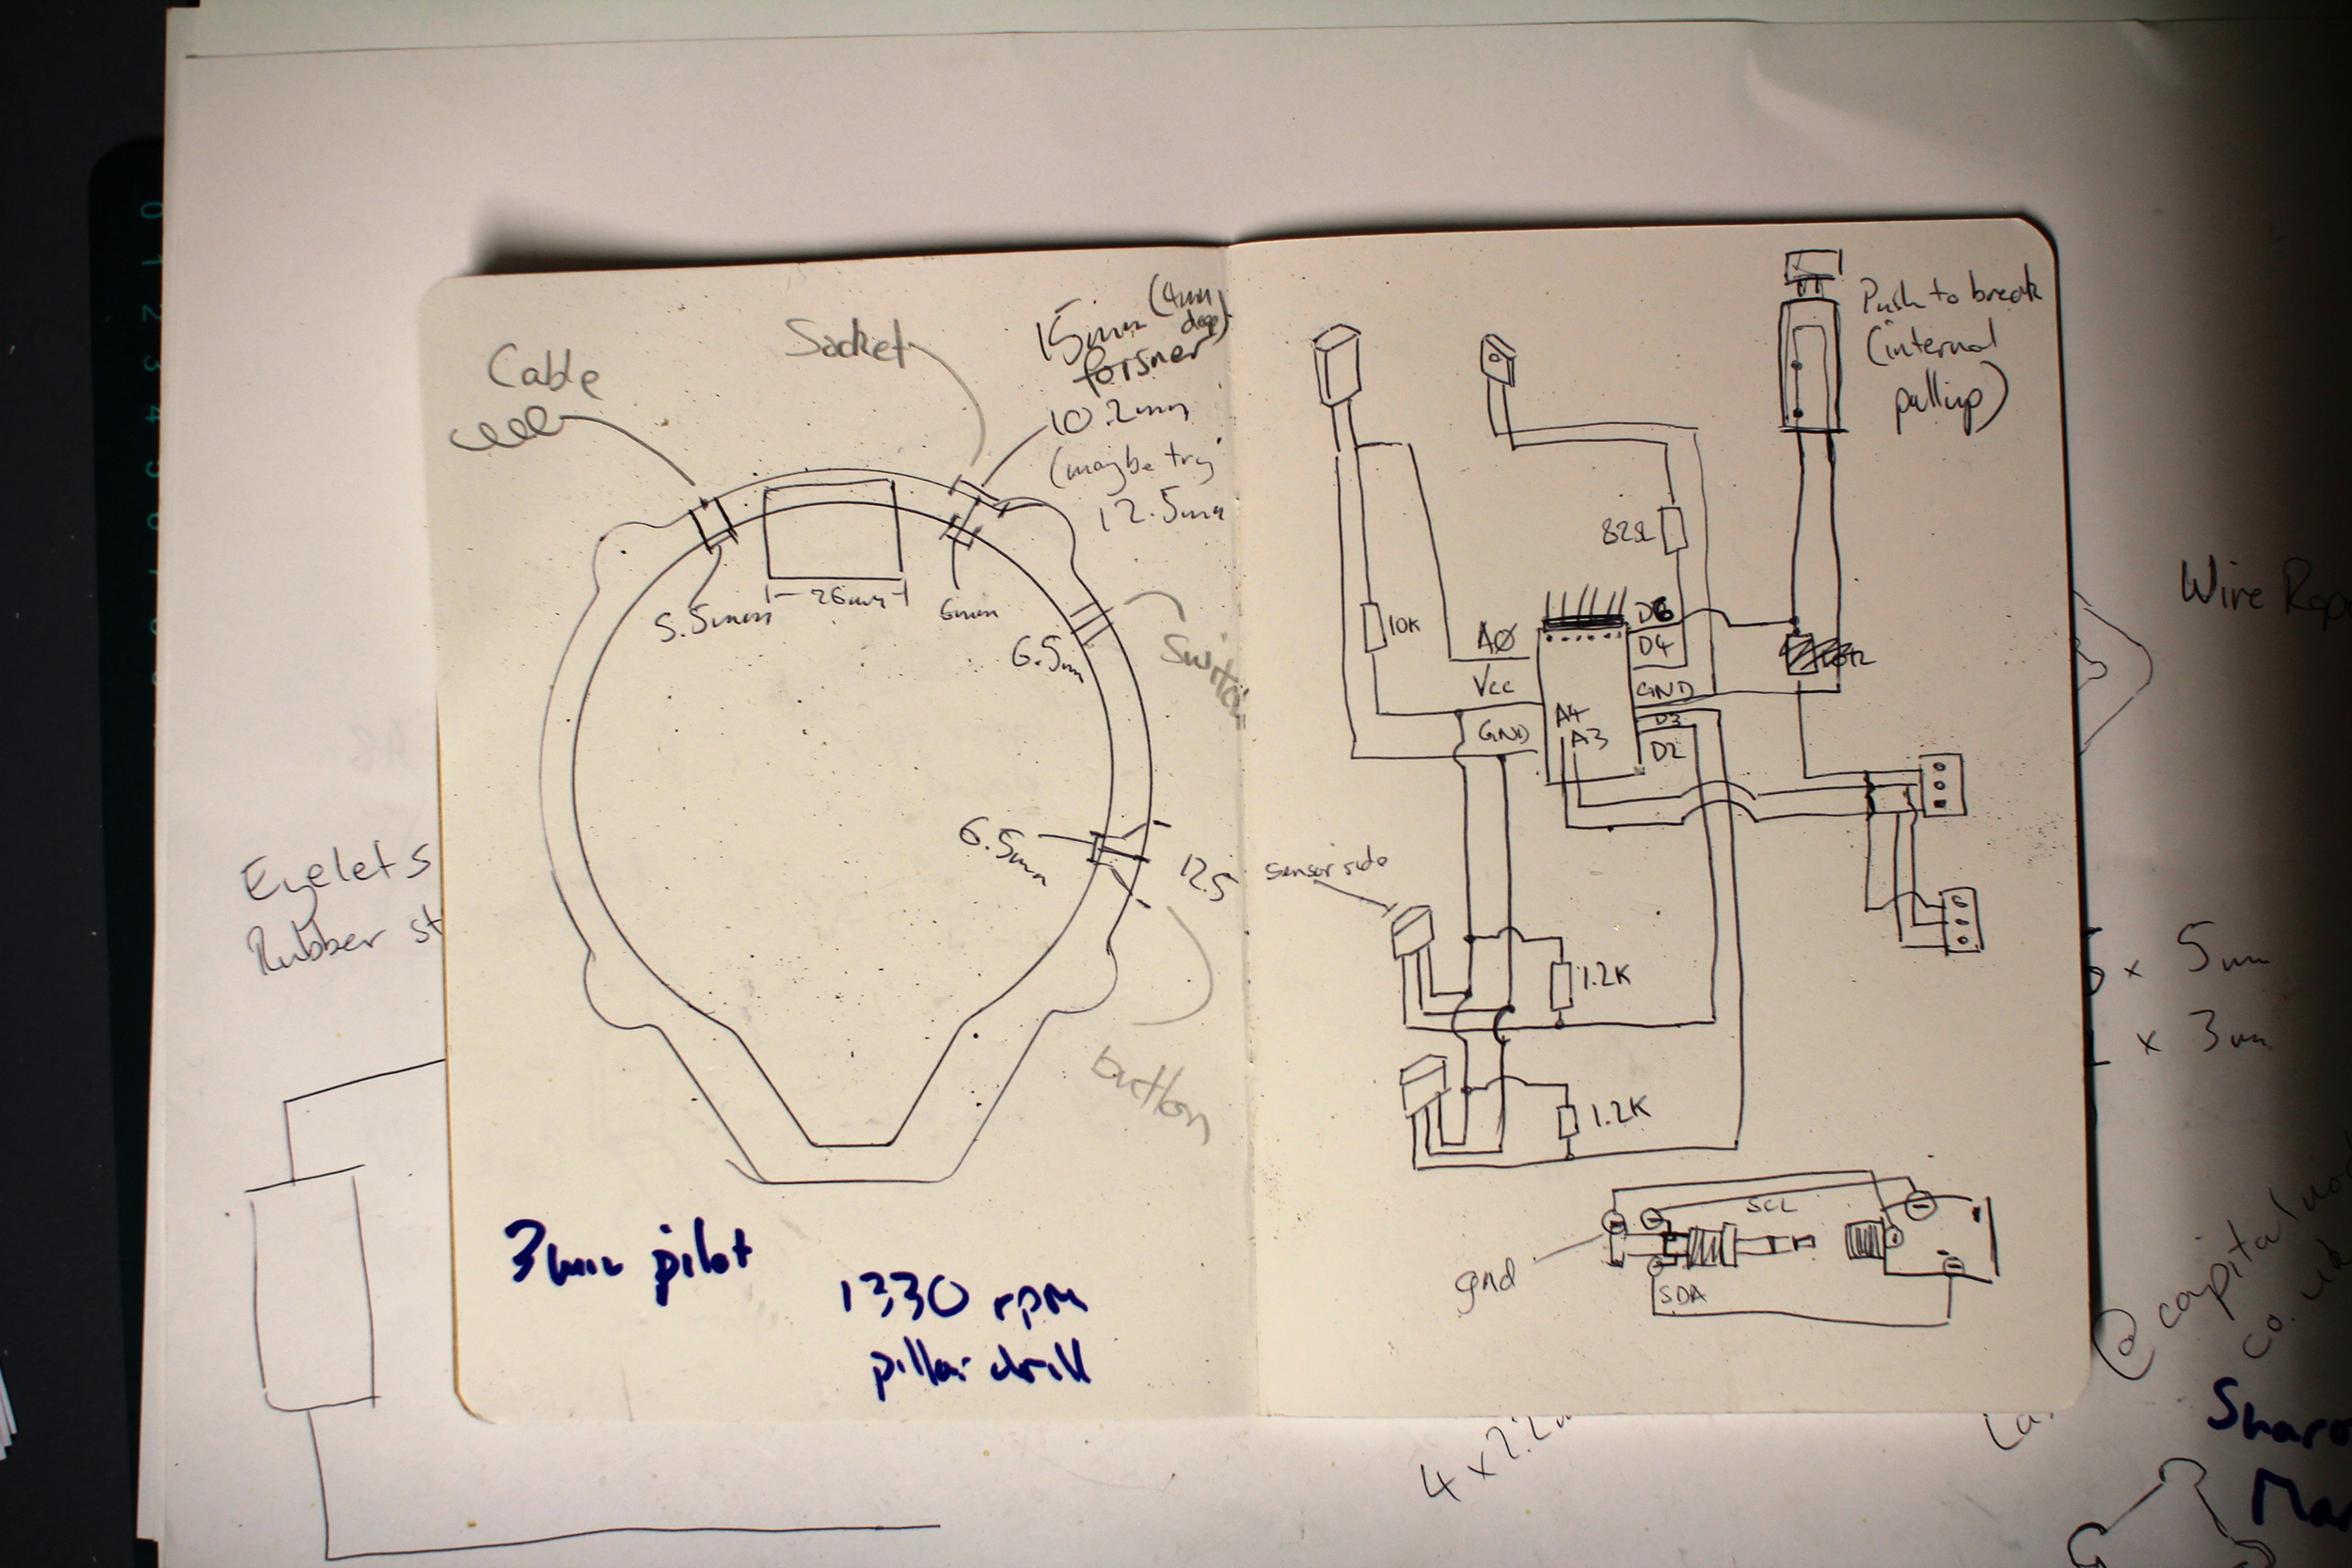 Cable
Socket
15mm (4mm deep)
forsner
10.2mm
(maybe try
12.5mm
5.5mm
26mm
6mm
6.5m
Switch
6.5mm
12.5
button
3mm pilot
1330 rpm
pillar drill
Push to break
(internal
pullup)
82Ω
10K
A0
Vcc
GND
D6
D4
GND
D3
D2
A4
A3
sensor side
1.2K
1.2K
SCL
gnd
SDA
Eyelets
Rubber st
Wire Rop
x 5mm
x 3mm
@capital
co.
4 x 2.2
0 1 2 3 4 5 6 7 8